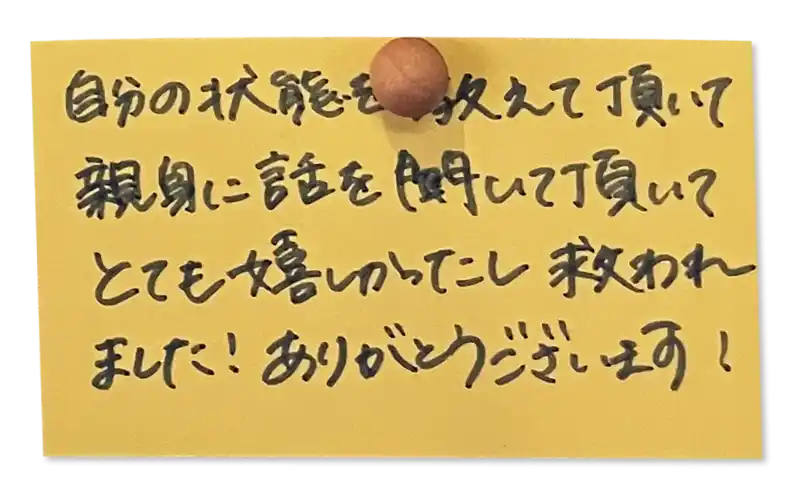 自分の状態を教えて頂いて
親身に話を聞いて頂いて
とても嬉しかったし救われ
ました!ありがとうございます!